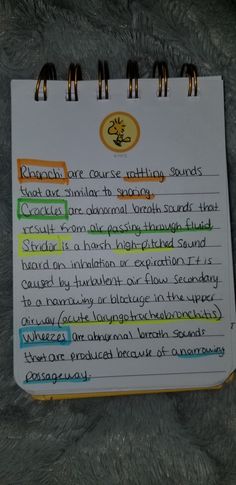 Rhonchi are course rattling sounds
that are similar to snoring.
Crackles are abnormal breath sounds that
result from air passing through fluid
Stridor is a harsh high-pitched sound
heard on inhalation or expiration It is
caused by turbulent air flow secondary
to a narrowing or blockage in the upper
airway (acute laryngotracheobronchitis)
Wheezes are abnormal breath sounds
that are produced because of a narrowing
passageway.